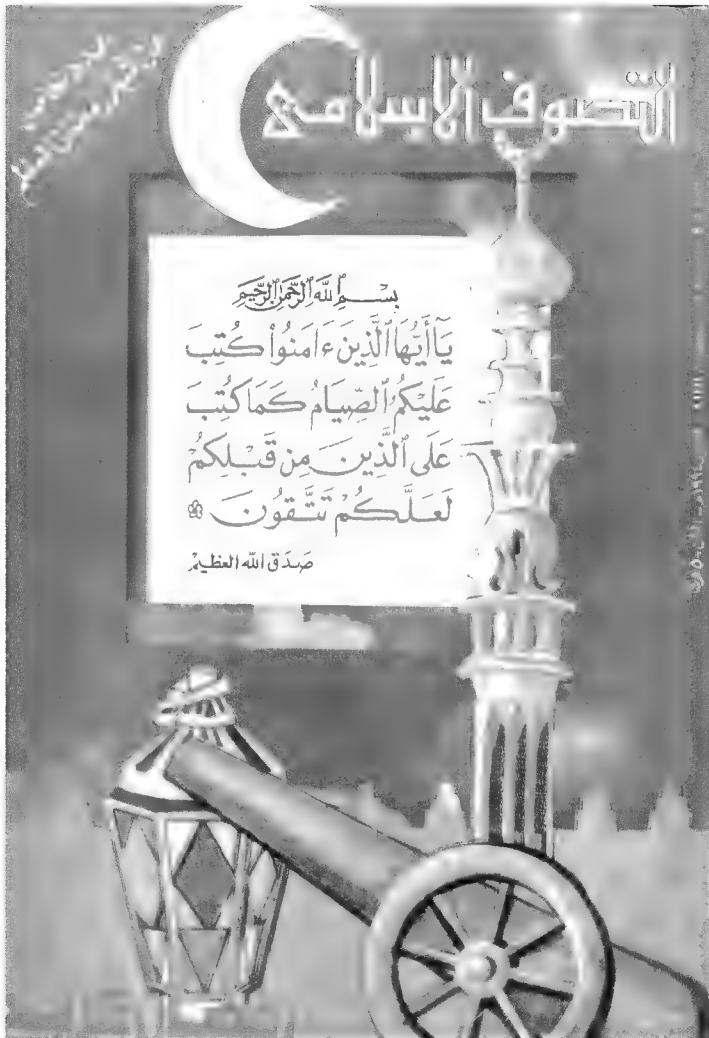 التصوف الاسلامى
بِسْمِ ٱللَّهِ ٱلرَّحْمَٰنِ ٱلرَّحِيمِ
يَٰٓأَيُّهَا ٱلَّذِينَ ءَامَنُوا۟ كُتِبَ
عَلَيْكُمُ ٱلصِّيَامُ كَمَا كُتِبَ
عَلَى ٱلَّذِينَ مِن قَبْلِكُمْ
لَعَلَّكُمْ تَتَّقُونَ
صَدَقَ الله العَظِيمْ